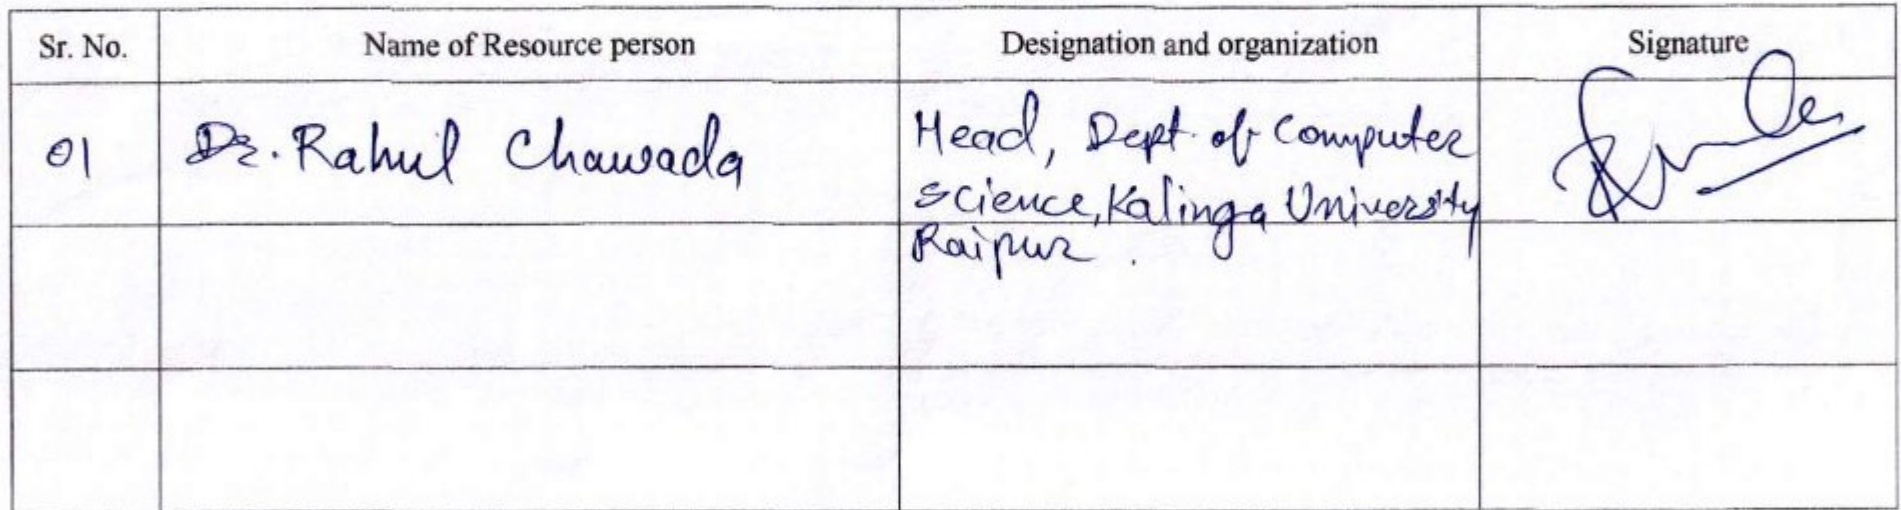 Sr. No. Name of Resource person Designation and organization Signature
01 Dr. Rahul Chawada Head, Dept. of Computer
Science, Kalinga University
Raipur.